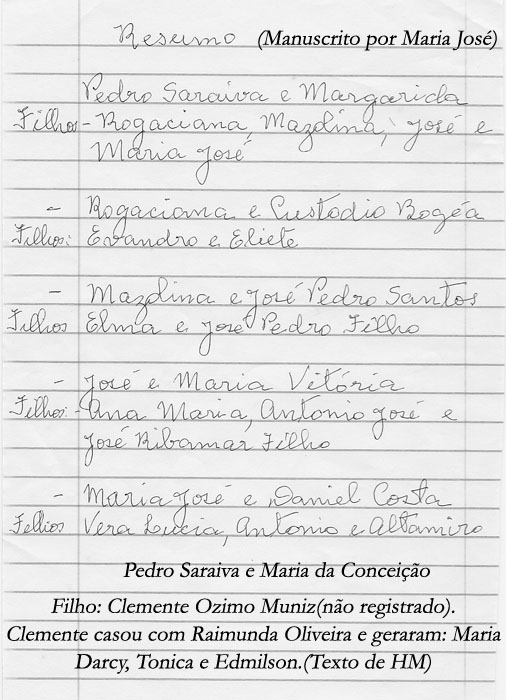 Resumo (Manuscrito por Maria José)
Pedro Saraiva e Margarida
Filhos - Rogaciana, Mazolina, José e
Maria José
- Rogaciana e Custodio Bogéa
Filhos: Evandro e Eliete
- Mazolina e José Pedro Santos
Filhos Elma e José Pedro Filho
- José e Maria Vitória
Filhos: - Ana Maria, Antonio José e
José Ribamar Filho
- Maria José e Daniel Costa
Felhos Vera Lucia, Antonio e Altamiro
Pedro Saraiva e Maria da Conceição
Filho: Clemente Ozimo Muniz(não registrado).
Clemente casou com Raimunda Oliveira e geraram: Maria
Darcy, Tonica e Edmilson.(Texto de HM)